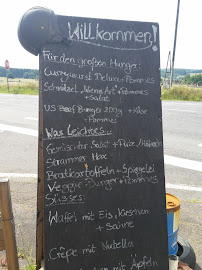 Willkommen!
Für den großen Hunger:
Currywurst Deluxe + Pommes
Schnitzel „Wiener Art" + Pommes
+ Salat
US Beef Burger 200g + Käse
+ Pommes
Was Leichtes...
Gemischter Salat + Pute/
Strammer Max
Bratkartoffeln + Spiegelei
Veggie-Burger + Pommes
Süsses:
Waffel mit Eis, Kirschen
+ Sahne
Crêpe mit Nutella
mit Äpfeln